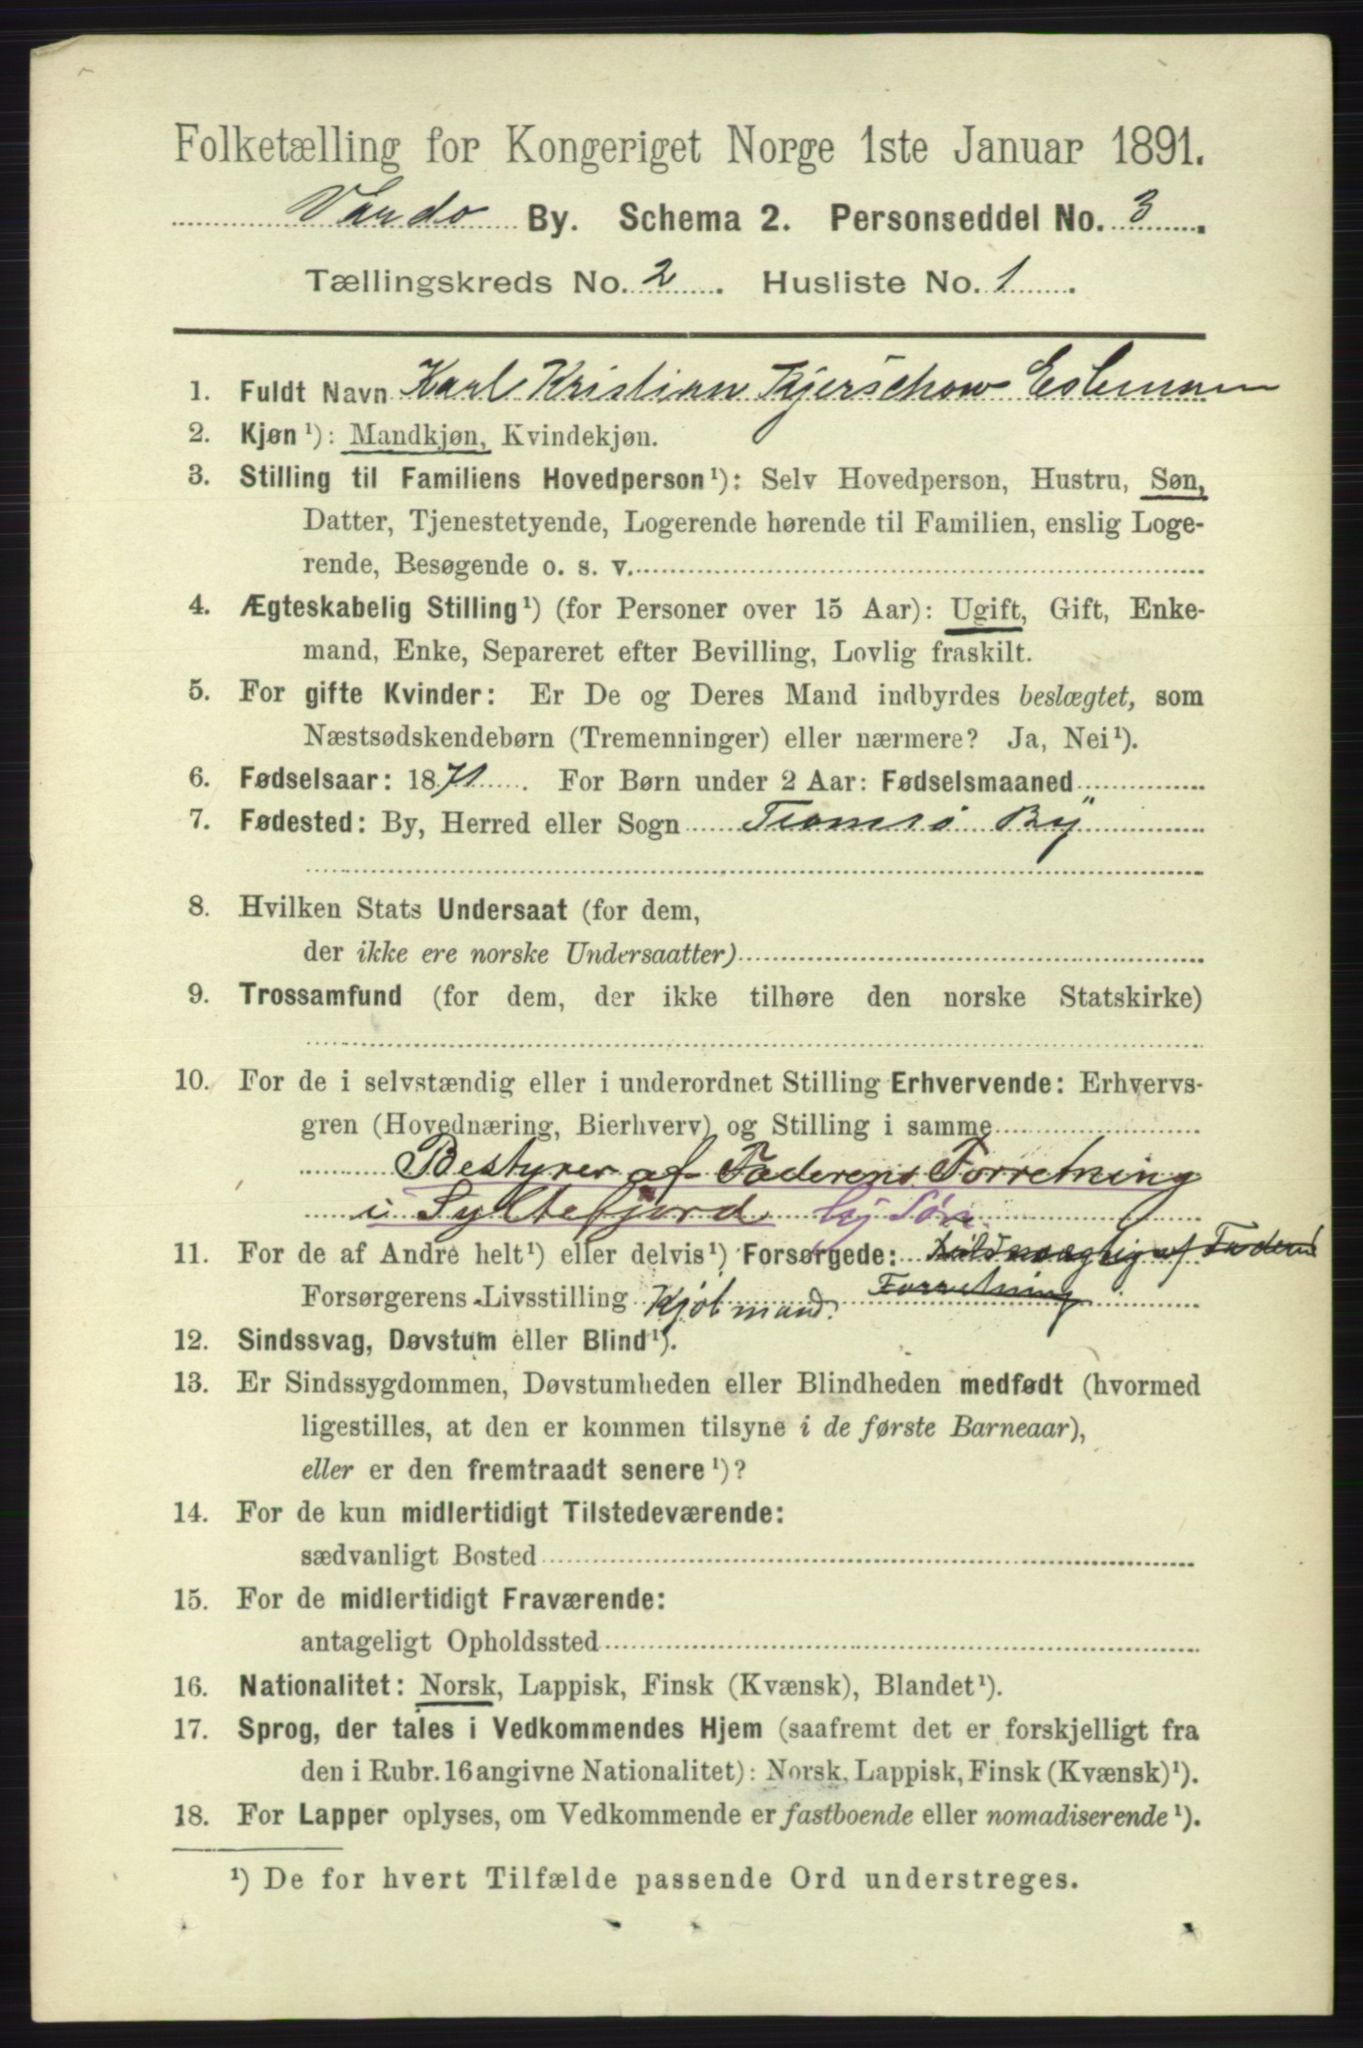 Folketælling for Kongeriget Norge 1ste Januar 1891.
Vardo By. Schema 2. Personseddel No. 3.
Tællingskreds No. 2. Husliste No. 1.
1. Fuldt Navn Karl Kristian Kjerschow Esbensen
2. Kjøn ¹): Mandkjøn, Kvindekjøn.
3. Stilling til Familiens Hovedperson ¹): Selv Hovedperson, Hustru, Søn,
Datter, Tjenestetyende, Logerende hørende til Familien, enslig Loge-
rende, Besøgende o. s. v.
4. Ægteskabelig Stilling ¹) (for Personer over 15 Aar): Ugift, Gift, Enke-
mand, Enke, Separeret efter Bevilling, Lovlig fraskilt.
5. For gifte Kvinder: Er De og Deres Mand indbyrdes beslægtet, som
Næstsødskendebørn (Tremenninger) eller nærmere? Ja, Nei ¹).
6. Fødselsaar: 1871. For Børn under 2 Aar: Fødselsmaaned
7. Fødested: By, Herred eller Sogn Tromsö By
8. Hvilken Stats Undersaat (for dem,
der ikke ere norske Undersaatter)
9. Trossamfund (for dem, der ikke tilhøre den norske Statskirke)
10. For de i selvstændig eller i underordnet Stilling Erhvervende: Erhvervs-
gren (Hovednæring, Bierhverv) og Stilling i samme
Bestyrer af Faderens Forretning
i Syltefjord hj Søn
11. For de af Andre helt ¹) eller delvis ¹) Forsørgede: af Faderens
Forretning
Forsørgerens Livsstilling Kjöbmand.
12. Sindssvag, Døvstum eller Blind ¹).
13. Er Sindssygdommen, Døvstumheden eller Blindheden medfødt (hvormed
ligestilles, at den er kommen tilsyne i de første Barneaar),
eller er den fremtraadt senere ¹)?
14. For de kun midlertidigt Tilstedeværende:
sædvanligt Bosted
15. For de midlertidigt Fraværende:
antageligt Opholdssted
16. Nationalitet: Norsk, Lappisk, Finsk (Kvænsk), Blandet ¹).
17. Sprog, der tales i Vedkommendes Hjem (saafremt det er forskjelligt fra
den i Rubr. 16 angivne Nationalitet): Norsk, Lappisk, Finsk (Kvænsk) ¹).
18. For Lapper oplyses, om Vedkommende er fastboende eller nomadiserende ¹).
¹) De for hvert Tilfælde passende Ord understreges.